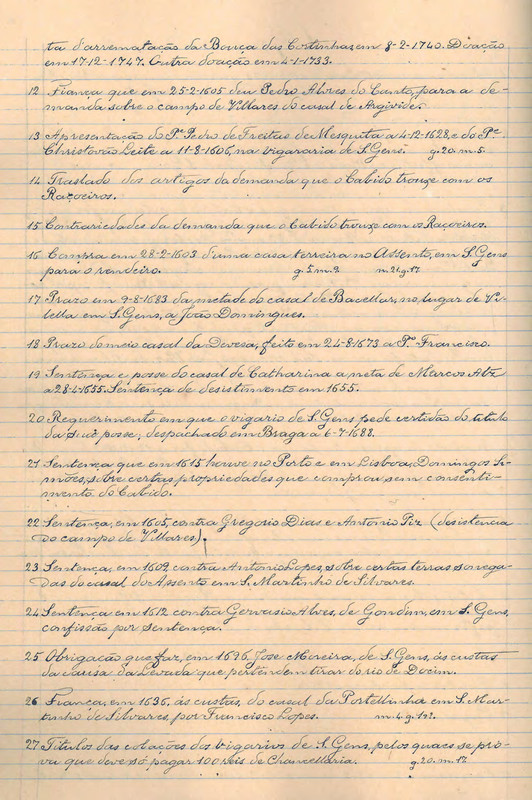 ta d'arrematação da Bouça das Cortinhas em 8-2-1740. Doação
em 17-12-1747. Outra doação em 4-1-1733.
12 Fiança que em 25-2-1605 deu Pedro Alvres do Canto, para a de-
manda sobre o campo de Villares do casal de Argivide.
13 Apresentação do Pe. Pedro de Freitas de Mesquita a 4-12-1628, e do Pe.
Christovão Leite a 11-8-1606, na vigararia de S. Gens. g. 20. m. 5.
14 Traslado dos artigos da demanda que o Cabido trouxe com os
Raçoeiros.
15 Contrariedades da demanda que o Cabido trouxe com os Raçoeiros.
16 Compra em 28-2-1603 d'uma casa terreira no Assento, em S. Gens
para o rendeiro. g. 5. m. 9. m. 21. g. 17
17 Prazo em 9-8-1683 da metade do casal de Bacellar, no lugar de Vi-
lella em S. Gens, a João Domingues.
18 Prazo do meio casal da Devesa, feito em 24-8-1673 a Po. Francisco.
19 Sentença e posse do casal de Catharina a neta de Marcos Alz
a 28-4-1655. Sentença de desistimento em 1655.
20 Requerimento em que o vigario de S. Gens pede certidão do titulo
da sua posse; despachado em Braga a 6-7-1688.
21 Sentença que em 1615 houve no Porto e em Lisboa, Domingos Si-
mões, sobre certas propriedades que comprou sem consenti-
mento do Cabido.
22 Sentença, em 1605, contra Gregorio Dias e Antonio Piz (desistencia
do campo de Villares).
23 Sentença, em 1609 contra Antonio Lopes, sobre certas terras sonega-
das do casal do Assento em S. Martinho de Silvares.
24 Sentença em 1612 contra Gervasio Alves, de Gondim, em S. Gens,
confissão por sentença.
25 Obrigação que faz, em 1696, José Moreira, de S. Gens, ás custas
da causa da Levada que pertendem tirar do rio de Docim.
26 Fiança, em 1636, ás custas do casal da Portellinha em S. Mar-
tinho de Silvares, por Francisco Lopes. m. 4. g.
27 Titulos das colações dos vigarios de S. Gens, pelos quaes se pro-
va que deve só pagar 100 reis de Chancellaria. g. 20. m. 17